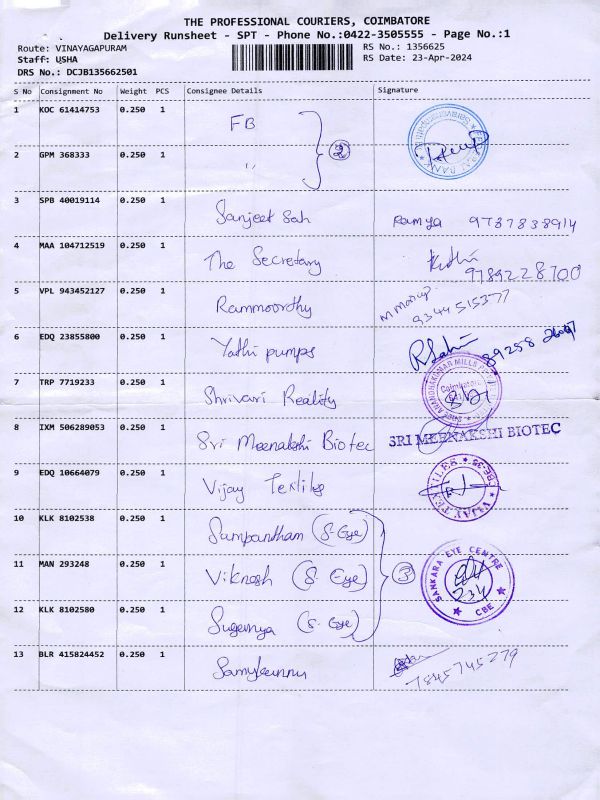 THE PROFESSIONAL COURIERS, COIMBATORE
Delivery Runsheet - SPT - Phone No.:0422-3505555 - Page No.:1
Route: VINAYAGAPURAM
RS No.: 1356625
Staff: USHA
RS Date: 23-Apr-2024
DRS No.: DCJB135662501
S No Consignment No Weight PCS Consignee Details Signature
1 KOC 61414753 0.250 1 FB
2 GPM 368333 0.250 1 " 2
3 SPB 40019114 0.250 1 Sanjeet Sah Ramya 9787838914
4 MAA 104712519 0.250 1 The Secretary 9789228700
5 VPL 943452127 0.250 1 Rammoorthy 9344515377
6 EDQ 23855800 0.250 1 Yathi pumps 89258
7 TRP 7719233 0.250 1 Shrivari Reality Coimbatore
8 IXM 506289053 0.250 1 Sri Meenakshi Biotec SRI MEENAKSHI BIOTEC
9 EDQ 10664079 0.250 1 Vijay Textiles VIJAY TEXTILES CBE-35
10 KLK 8102538 0.250 1 Sampantham (S-Eye)
11 MAN 293248 0.250 1 Viknesh (S-Eye) 3 SANKARA EYE CENTRE CBE 234
12 KLK 8102580 0.250 1 Sugemya (S-Eye)
13 BLR 415824452 0.250 1 Samykannu 7845745279